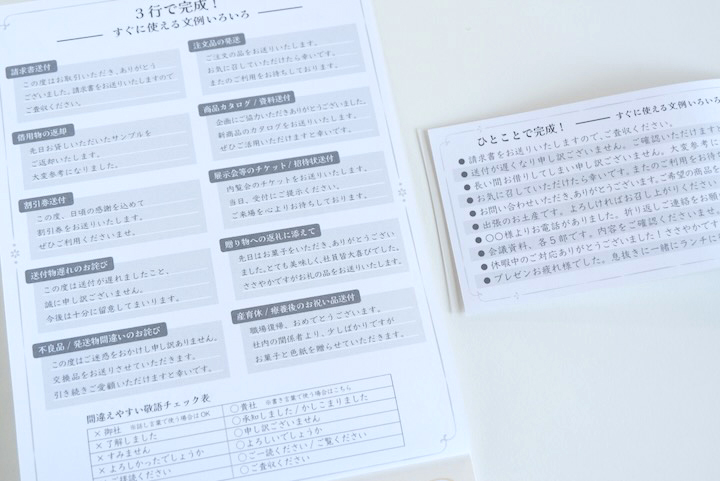 3行で完成！
すぐに使える文例いろいろ
請求書送付
この度はお取引いただき、ありがとう
ございました。請求書をお送りいたしますので
ご査収ください。
借用物の返却
先日お貸しいただいたサンプルを
ご返却いたします。
大変参考になりました。
割引券送付
この度、日頃の感謝を込めて
割引券をお送りいたします。
ぜひご利用くださいませ。
送付物遅れのお詫び
この度は送付が遅れましたこと、
誠に申し訳ございません。
今後は十分に留意してまいります。
不良品 / 発送物間違いのお詫び
この度はご迷惑をおかけし申し訳ありません。
交換品をお送りさせていただきます。
引き続きご愛顧いただけますと幸いです。
注文品の発送
ご注文の品をお送りいたします。
お気に召していただけたら幸いです。
またのご利用をお待ちしております。
商品カタログ / 資料送付
企画にご協力いただきありがとうございました。
新商品のカタログをお送りいたします。
ぜひご活用いただけますと幸いです。
展示会等のチケット / 招待状送付
内覧会のチケットをお送りいたします。
当日、受付にご提示ください。
ご来場を心よりお待ちしております。
贈り物への返礼に添えて
先日はお菓子をいただき、ありがとうござい
ました。とても美味しく、社員皆大喜びでした。
ささやかですがお礼の品をお送りいたします。
産育休 / 療養後のお祝い品送付
職場復帰、おめでとうございます。
社内の関係者より、少しばかりですが
お菓子と色紙を贈らせていただきます。
間違えやすい敬語チェック表
× 御社 ※話し言葉で使う場合はOK
○ 貴社 ※書き言葉で使う場合はこちら
× 了解しました
○ 承知しました / かしこまりました
× すみません
○ 申し訳ございません
× よろしかったでしょうか
○ よろしいでしょうか
ご拝読ください
○ ご一読ください / ご覧ください
○ ご査収ください
ひとことで完成！
すぐに使える文例いろいろ
● 請求書をお送りいたしますので、ご査収ください。
● 送付が遅くなり申し訳ございません。ご確認いただけます
● 長い間お借りしてしまい申し訳ありません。大変参考に
● お気に召していただけたら幸いです。またのご利用をお待
● お問い合わせいただき、ありがとうございます。ご希望の商品を
● 出張のお土産です。よろしければお召し上がりください
● 〇〇様よりお電話がありました。折り返しご連絡をお願い
● 会議資料、各5部です。内容をご確認くださいませ
● 休暇中のご対応ありがとうございました！ささやかです
● プレゼンお疲れ様でした。息抜きに一緒にランチに